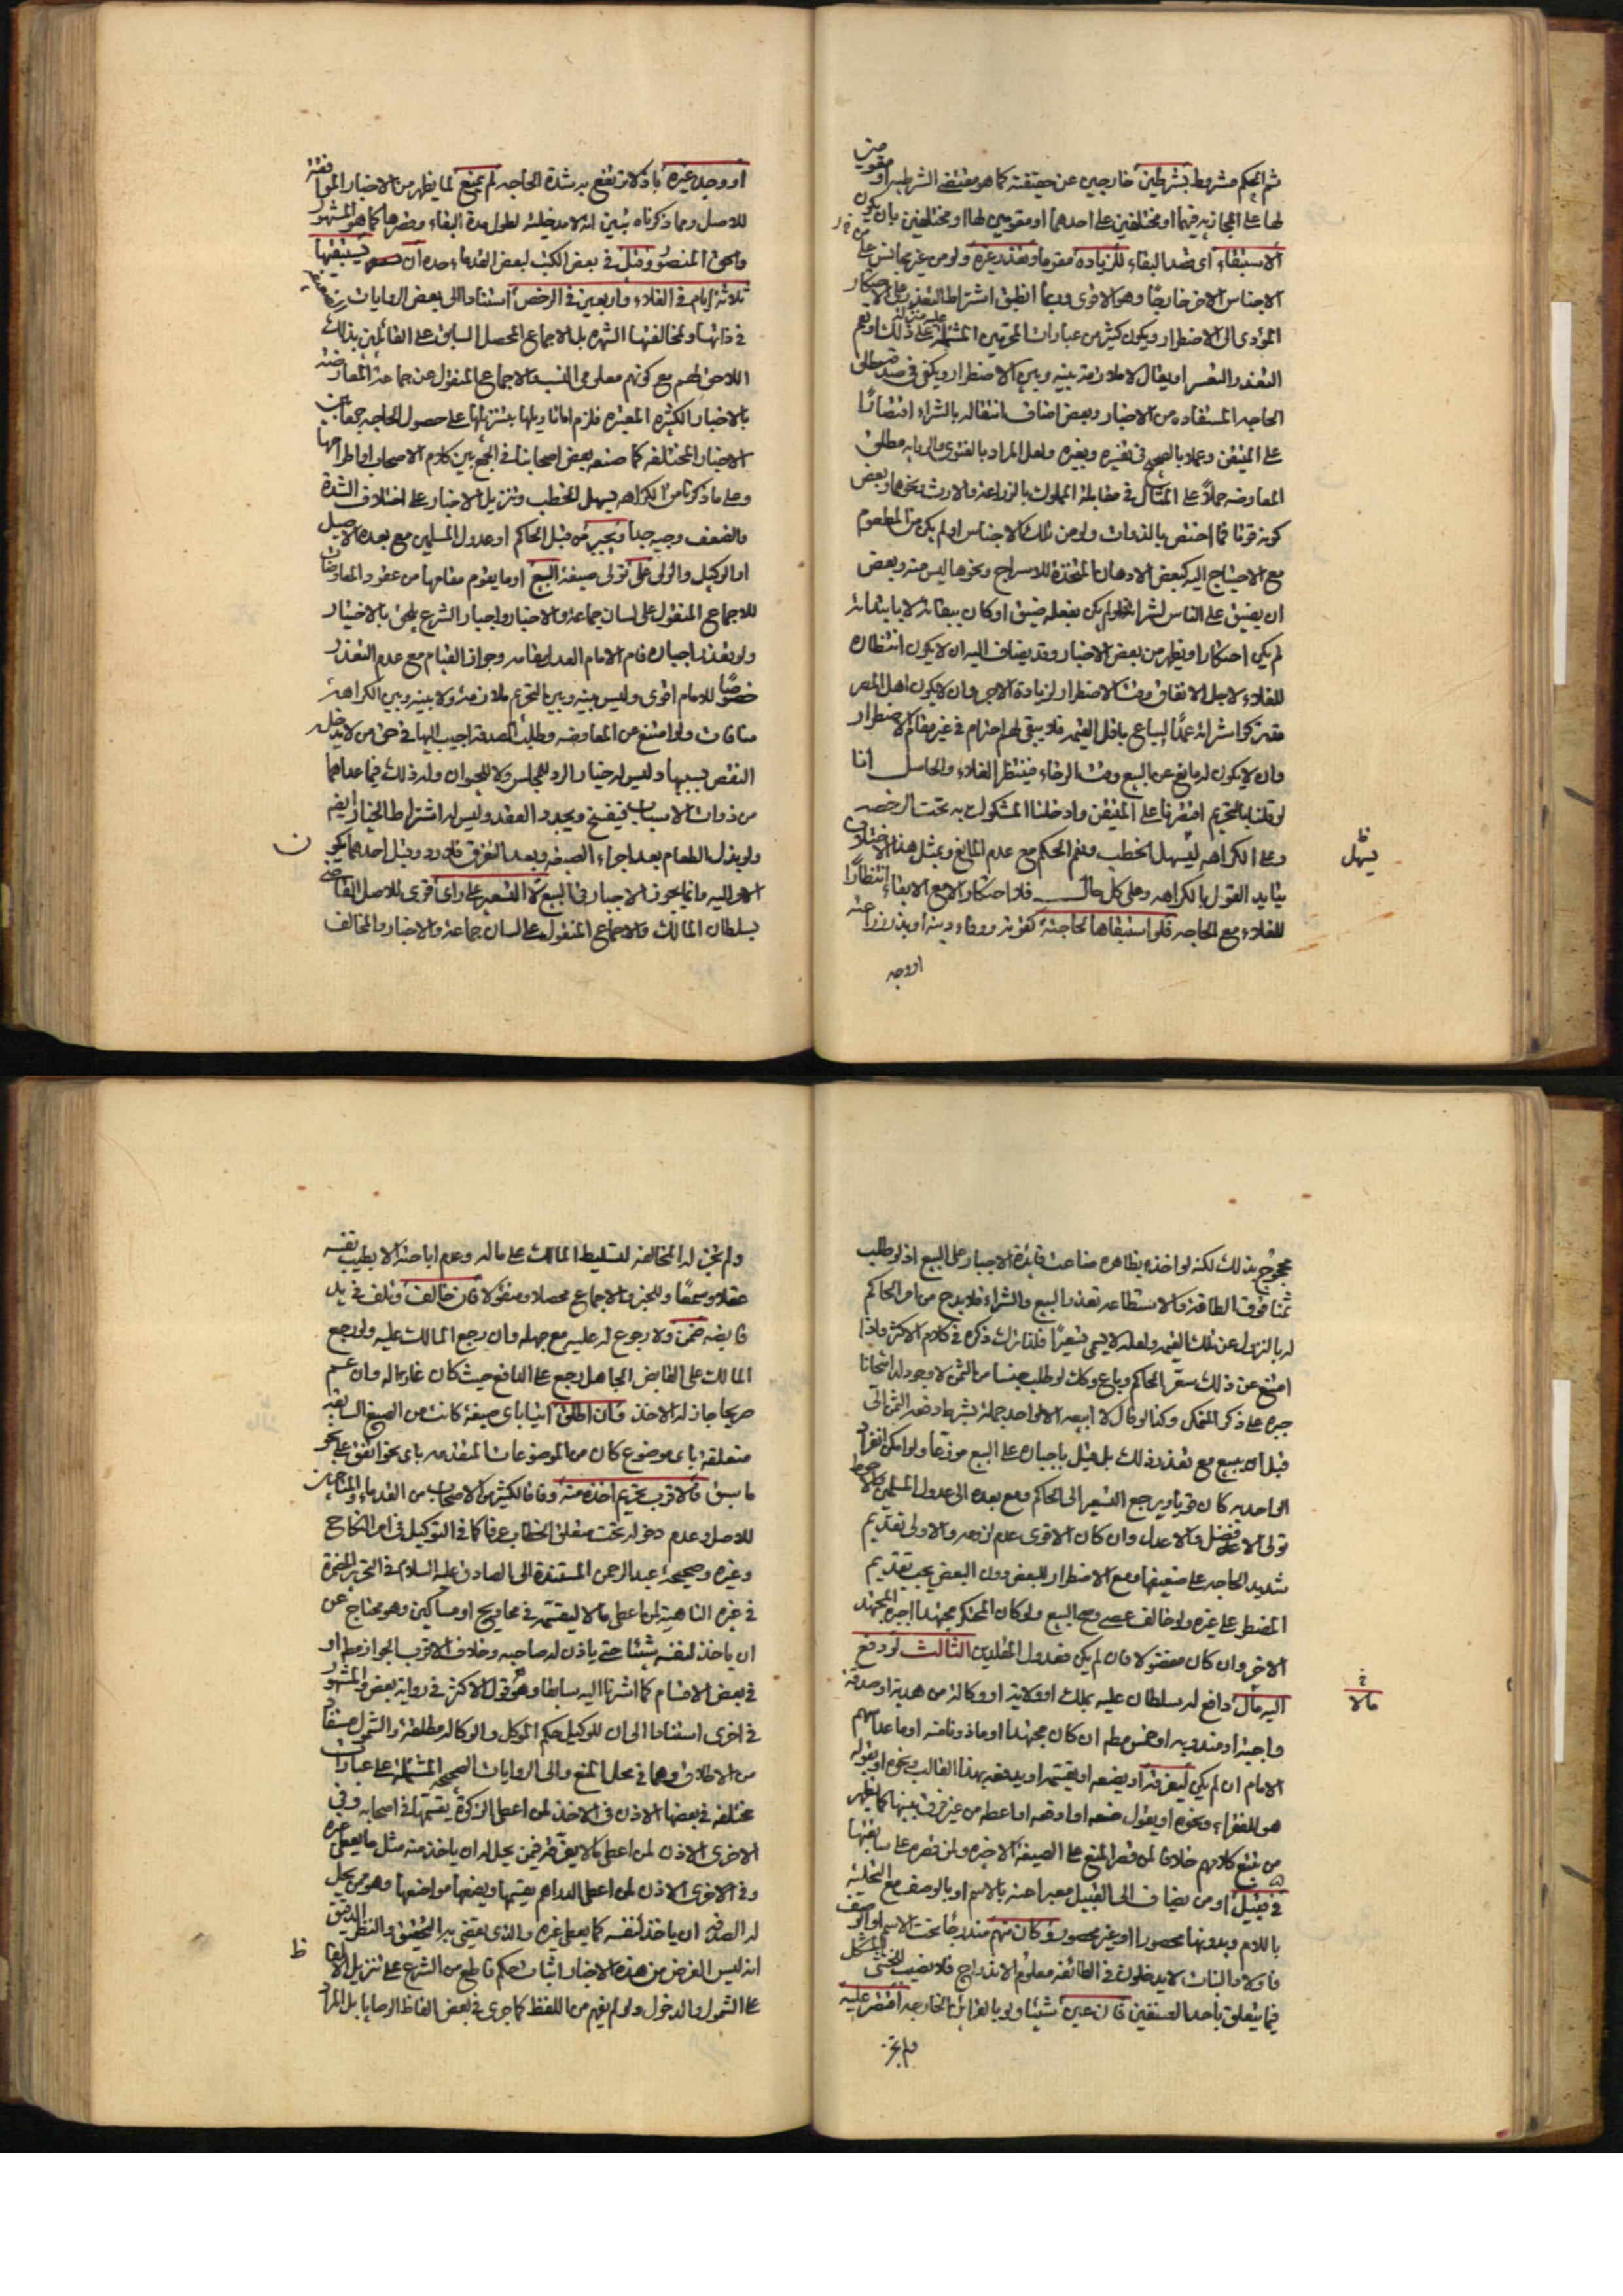 ثم الحكم مشروط بشرطين خارجين عن حقيقته كما هو مقتضى الشرطية او مقومين
لها على المجاز به فيهما او مختلفين على احدهما او مقومين لها او مختلفين بان يكون
الاستبقاء اى قصد البقاء للزيادة مقوما وتعذر غيره ولو من غير مجانس على
الاجناس الاخر خارجا وهو الاقوى وربما انطبق اشتراط التعذر على الاحتكار
المؤدى الى الاضطرار ويكون كثير من عبارات المحرمين المشتملة على ذلك او يعم
التعذر التعسر او يقال لا ملازمة بينه وبين الاضطرار ويكفى فى صدقه مطلق
الحاجه المستفاده من الاخبار وبعض اضاف انتقاله بالشراء اقتصارا
على المتيقن وعملا بالصحيح فى تفسيره وبغيره ولعل المراد بالفتوى والروايه مطلق
المعاوضه حملا على المثال فى مقابلة المملوك بالزراعة والارث ونحوهما وبعض
كونه قوتا فما اختص بالذوات ولو من تلك الاجناس او لم يكن من المطعوم
مع الاحتياج اليه كبعض الادهان المتخذة للاسراج ونحوها ليس منه وبعض
ان يضيق على الناس لشرائه فلو لم يكن بفعله ضيق او كان ببقائه لا بابتدائه
لم يكن احتكارا ويظهر من بعض الاخبار وقد يضاف اليه ان لا يكون انتظاره
للغلاء لاجل الانفاق وقت الاضطرار لزيادة الاجر وان لا يكون اهل المصر
تركوا شرائه عمدا ليباع باقل القيم فلا يبقى لهم احترام فى غير مقام الاضطرار
وان لا يكون له مانع عن البيع وقت الرخاء فينتظر الغلاء والحاصل انا
لو قلنا بالتحريم اقتصرنا على المتيقن وادخلنا المشكوك به تحت الرخصه
وعلى الكراهه ليسهل الخطب ونعم الحكم مع عدم المانع وبمثل هذا الاختلاف
يتايد القول بالكراهه وعلى كل حال فلا احتكار الا مع الابقاء انتظارا
للغلاء مع الحاجه فلو استبقاها لحاجته كقوته ووفاء دينه او بذر زراعته
او وجد
يسهل
او وجد غيره باذلا تندفع به شدة الحاجه لم يمنع لما يظهر من الاخبار الموافقة
للاصل ومما ذكرناه تبين انه لا مدخلية لطول مدة البقاء وقصرها كما هو المشهور
والحق المنصور وقيل فى بعض الكتب لبعض القدماء حده ان يستبقيها
ثلاثة ايام فى الغلاء واربعين فى الرخص استنادا الى بعض الروايات
فى ذاتها ولمخالفتها الشهره بل الاجماع المحصل السابق على القائلين بذلك
اللاحق لهم مع كونهم معلومى النسب والاجماع المنقول عن جماعة المعارضة
بالاخبار الكثيره المعتبره فلزم اما تاويلها بتنزيلها على حصول الحاجه جمعا بين
الاخبار المختلفه كما صنعه بعض اصحابنا فى الجمع بين كلام الاصحاب او اطراحها
وعلى ما ذكرنا من الكراهه يسهل الخطب وتنزيل الاخبار على اختلاف الشدة
والضعف وجيه جدا ويجبر من قبل الحاكم او عدول المسلمين مع بعده الاصيل
او الوكيل والولى على تولى صيغة البيع او ما يقوم مقامها من عقود المعاوضات
للاجماع المنقول على لسان جماعة والاخبار واجبار الشرع يلحق بالاختيار
ولو تعذر اجباره قام الامام العدل مقامه وجواز القيام مع عدم التعذر
خصوصا للامام اقوى وليس بينه وبين التحريم ملازمة ولا بينه وبين الكراهة
منافات ولو امتنع من المعاوضه وطلب الصدقه اجيب اليها فى حق من لا يدخله
النقص بسببها وليس له خيار الرد للمجلس ولا للحيوان وله ذلك فيما عداهما
من ذوات الاسباب فيفسخ ويجدد العقد وليس له اشتراط الخيار ايضا
ولو بذل الطعام بعد اجراء الصيغه وبعد التفرق فلا رد وقبل احدهما يكون
الامر اليه وانما يجوز الاجبار فى البيع لا التسعير على راى اقوى للاصل القاضى
بسلطان المالك والاجماع المنقول على لسان جماعة والاخبار والمخالف
ن
محجوج بذلك لكنه لو اخذ بظاهره ضاعت فايدة الاجبار على البيع اذ لو طلب
ثمنا فوق الطاقة والاستطاعه تعذر البيع والشراء فلا بد ح من امر الحاكم
له بالنزول عن تلك القيمه ولعله لا يسمى تسعيرا فلذا ترك ذكره فى كلام الاكثر فاذا
امتنع عن ذلك سعر الحاكم وباع وكذا لو طلب جنسا من الثمن لا وجود له امتحانا
جبره على ذكر الممكن وكذا لو قال لا ابيعه الا لواحد جملة بشرط دفعه الثمن الى
قبل ان يبيع مع تعذر ذلك بل قيل باجباره على البيع موزعا ولو امكن انفراد
الواحد به كان قويا ويرجع التسعير الى الحاكم ومع بعده الى عدول المسلمين والاحوط
تولى الافضل والاعدل وان كان الاقوى عدم لزومه والاولى تقديم
شديد الحاجه على ضعيفها ومع الاضطرار للبعض دون البعض يجب تقديم
المضطر على غيره ولو خالف عصى وصح البيع ولو كان المحتكر مجتهدا اجبره المجتهد
الاخر وان كان مفضولا فان لم يكن فعدول المقلدين الثالث لو دفع
اليه مال دافع له سلطان عليه بملك او ولاية او وكالة من هدية او صدقة
واجبة او مندوبه او خمس مطلقا ان كان مجتهدا او ماذونا منه او ما عدا سهم
الامام ان لم يكن ليفرقه او يضعه او يقسمه او يدفعه بهذا القالب ونحوه او بقوله
هو للفقراء ونحوه او يقول ضعه او ادفعه او اعطه من غير فرق بينها كما يظهر
من تتبع كلامهم خلافا لمن قصر المنع على الصيغة الاخيره ولمن قصره على سابقتها
فى قبيل او من يضاف الى القبيل معبرا عنه بالاسم او بالوصف مع التحلية
باللام وبدونها محصورا او غير محصور وكان منهم مندرجا تحت الاسم او الوصف
فاولاد البنات لا يدخلون فى الطائفة معلوم الاندراج فلا نصيب للخنثى المشكل
فيما يتعلق باحد الصنفين فان عين شيئا ولو بالقرائن الخارجه اقتصر عليه
ولم يجز
مالا
ولم يجز له المخالفه لتسليط المالك على ماله وعدم اباحته الا بطيب نفسه
عقلا وسمعا وللخبر والاجماع محصلا ومنقولا فان خالف وتلف فى يد
قابضه ضمن ولا رجوع له عليه مع جهله وان رجع المالك عليه ولو رجع
المالك على القابض الجاهل رجع على الدافع حيث كان غارا له وان عمم
صريحا جاز له الاخذ وان اطلق اتيا باى صيغة كانت من الصيغ السابقه
متعلقة باى موضوع كان من الموضوعات المتقدمه باى نحو اتفق على نحو
ما سبق فالاقرب تحريم اخذه منه وفاقا لكثير من الاصحاب من القدماء والمتاخرين
للاصل وعدم دخوله تحت متعلق الخطاب عرفا كما فى التوكيل فى امر النكاح
وغيره وصحيحة عبد الرحمن المستندة الى الصادق عليه السلام فى التحرير المضمرة
فى غيره الناهية لمن اعطى مالا ليقسمه فى محاويج او مساكين وهو محتاج عن
ان ياخذ لنفسه شيئا حتى ياذن له صاحبه وخلاف الاقرب الجواز مطلقا او
فى بعض الاقسام كما اشرنا اليه سابقا وهو قول الاكثر فى رواية بعض والمشهور
فى اخرى استنادا الى ان للوكيل حكم الموكل والوكاله مطلقة والشمول مستفاد
من الاطلاق وهما فى محل المنع والى الروايات الصحيحه المشتمله على عبارات
مختلفه فى بعضها الاذن فى الاخذ لمن اعطى الزكوة يقسمها فى اصحابه وفى
الاخرى الاذن لمن اعطى مالا يفرقه فيمن يحل له ان ياخذ منه مثل ما يعطى غيره
وفى الاخرى الاذن لمن اعطى الدراهم يقسمها ويضعها مواضعها وهو ممن يحل
له الصدقه ان ياخذ لنفسه كما يعطى غيره والذى يقضى به التحقيق والنظر الدقيق
انه ليس الغرض من هذه الاخبار اثبات حكم قاطع من الشرع على تنزيل الالفاظ
على الشمول والدخول ولو لم يفهم من اللفظ كما جرى فى بعض الفاظ الوصايا بل المراد
ظ